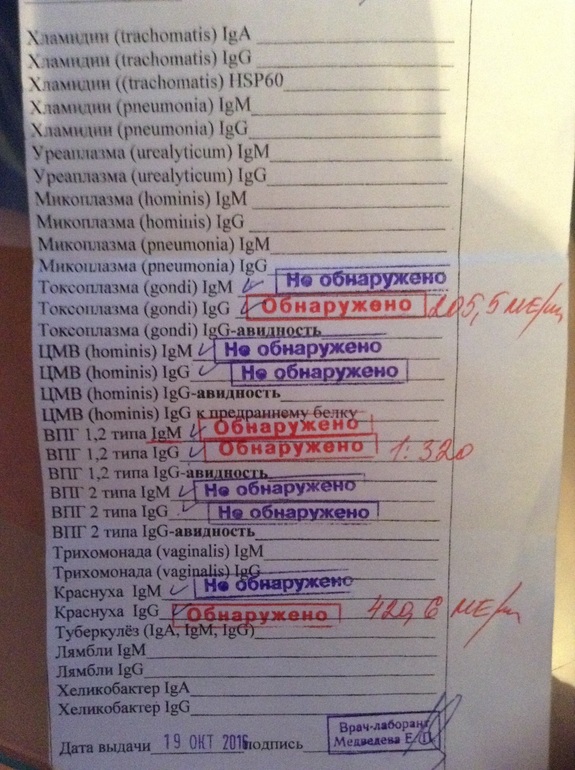 Хламидии (trachomatis) IgA
Хламидии (trachomatis) IgG
Хламидии ((trachomatis) HSP60
Хламидии (pneumonia) IgM
Хламидии (pneumonia) IgG
Уреаплазма (urealyticum) IgM
Уреаплазма (urealyticum) IgG
Микоплазма (hominis) IgM
Микоплазма (hominis) IgG
Микоплазма (pneumonia) IgM
Микоплазма (pneumonia) IgG
Токсоплазма (gondi) IgM Не обнаружено
Токсоплазма (gondi) IgG Обнаружено 205,5 МЕ/мл
Токсоплазма (gondi) IgG-авидность
ЦМВ (hominis) IgM Не обнаружено
ЦМВ (hominis) IgG Не обнаружено
ЦМВ (hominis) IgG-авидность
ЦМВ (hominis) IgG к предраннему белку
ВПГ 1,2 типа IgM Обнаружено
ВПГ 1,2 типа IgG Обнаружено 1:320
ВПГ 1,2 типа IgG-авидность
ВПГ 2 типа IgM Не обнаружено
ВПГ 2 типа IgG Не обнаружено
ВПГ 2 типа IgG-авидность
Трихомонада (vaginalis) IgM
Трихомонада (vaginalis) IgG
Краснуха IgM Не обнаружено
Краснуха IgG Обнаружено 420,6 МЕ/мл
Туберкулёз (IgA, IgM, IgG)
Лямбли IgM
Лямбли IgG
Хеликобактер IgA
Хеликобактер IgG
Дата выдачи 19 ОКТ 2016 подпись
Врач-лаборант
Медведева Е.